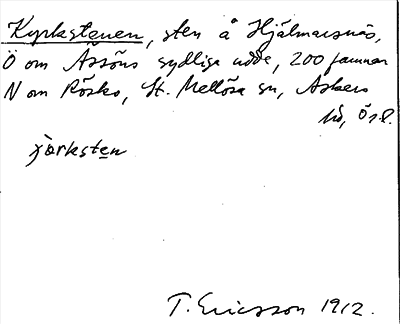 Kyrkstenen, sten å Hjälmarsnäs,
Ö om Åsöns sydliga udde, 200 famnar
N om Rösko, St. Mellösa sn, Askers
hd, Ör l.
kjørksten
T. Ericsson 1912.